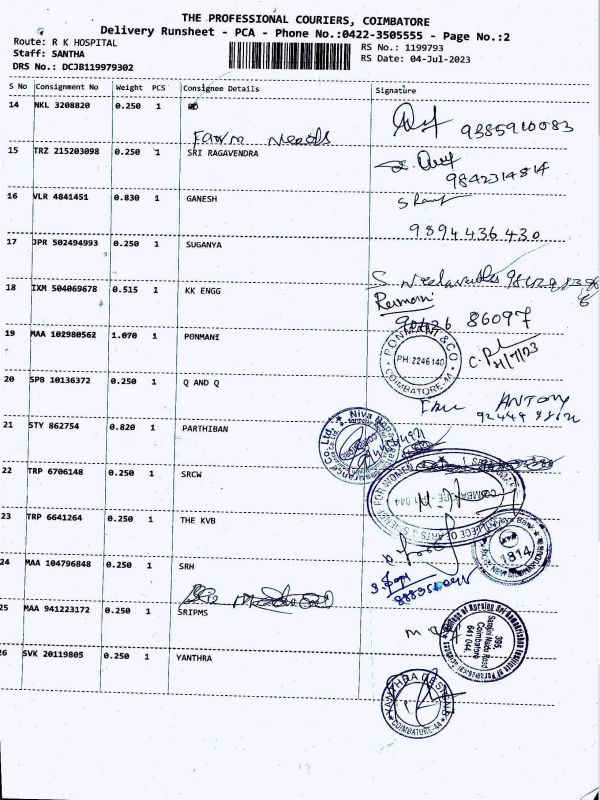 THE PROFESSIONAL COURIERS, COIMBATORE
Delivery Runsheet - PCA - Phone No.:0422-3505555 - Page No.:2
Route: R K HOSPITAL
Staff: SANTHA
DRS No.: DCJB119979302
RS No.: 1199793
RS Date: 04-Jul-2023
S No Consignment No Weight PCS Consignee Details Signature
14 NKL 3208820 0.250 1
Farm Needs
9385910083
15 TRZ 215203098 0.250 1 SRI RAGAVENDRA
9842314814
16 VLR 4841451 0.830 1 GANESH
9894436430
17 JPR 502494993 0.250 1 SUGANYA
18 IXM 504069678 0.515 1 KK ENGG
86097
19 MAA 102980562 1.070 1 PONMANI
PONMANI & CO
PH: 2246140
COIMBATORE-44
4/7/23
20 SPB 10136372 0.250 1 Q AND Q
ANTONY
21 STY 862754 0.820 1 PARTHIBAN
Niva
22 TRP 6706148 0.250 1 SRCW
COLLEGE OF ARTS & SCIENCE FOR WOMEN
COIMBATORE - 641 044
23 TRP 6641264 0.250 1 THE KVB
1814
24 MAA 104796848 0.250 1 SRH
25 MAA 941223172 0.250 1 SRIPMS
College of Nursing Sri Ramakrishna Institute of Paramedical Sciences
395,
Sarojini Naidu Road
Coimbatore
641 044.
26 SVK 20119805 0.250 1 YANTHRA
YANTHRA DESIGNS
COIMBATORE-44